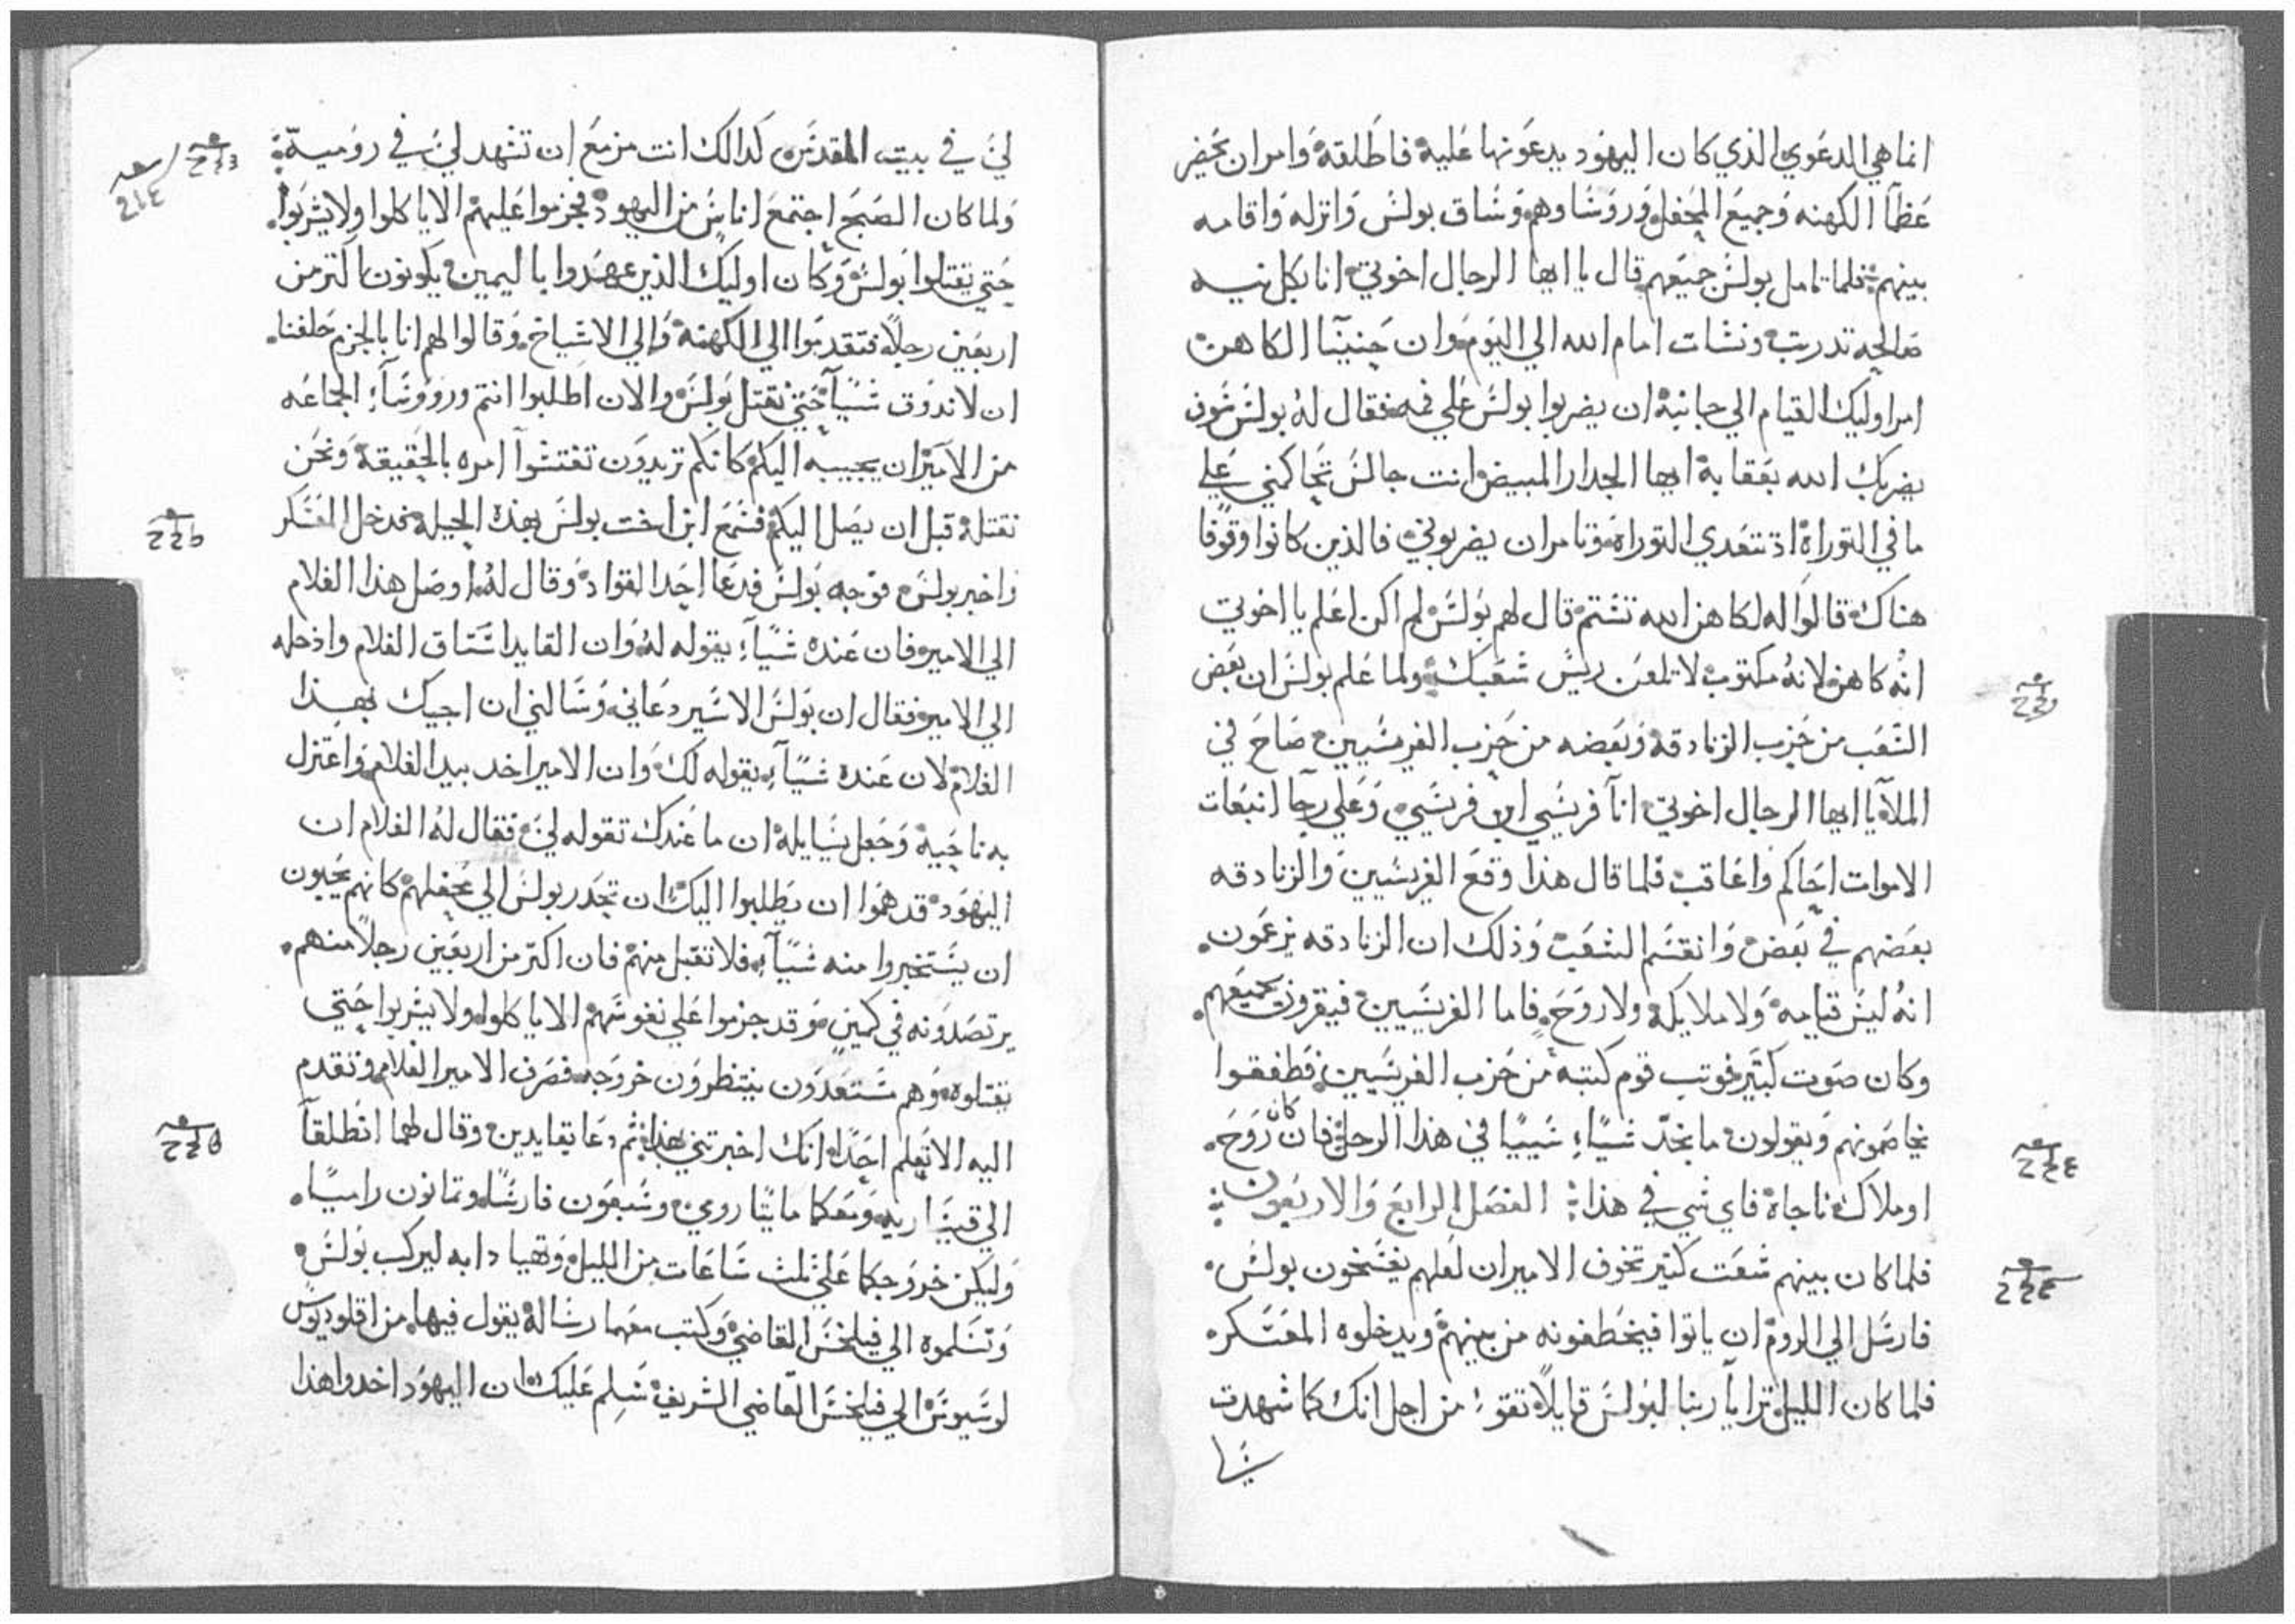 انما هي الدعوي الذي كان اليهود يدعونها عليه فاطلقه وامر ان يحضر
عظآ الكهنه وجميع المحفل وروساوهم وساق بولس وانزله واقامه
بينهم فلما تامل بولس جميعهم قال يا ايها الرجال اخوتي انا بكل نيه
صالحه تدربت ونشات امام الله الي اليوم وان حنينآ الكاهن
امر اوليك القيام الي جانبه ان يضربوا بولس علي فمه فقال له بولس سوف
يضربك الله بعقابه ايها الجدار المبيض انت جالس تحاكمني علي
ما في التوراة اذ تتعدي التوراه وتامر ان يضربوني فالذين كانوا وقوفا
هناك قالوا له لكاهن الله تشتم قال لهم بولس لم اكن اعلم يا اخوتي
انه كاهن لانه مكتوب لا تلعن ريس شعبك ولما علم بولس ان بعض
الشعب من حزب الزنادقه وبعضه من حزب الفريسيين صاح في
الملآ يا ايها الرجال اخوتي انآ فريسي ابن فريسي وعلي رجآ انبعات
الاموات احاكم واعاقب فلما قال هذا وقع الفريسيين والزنادقه
بعضهم في بعض وانقسم الشعب وذلك ان الزنادقه يزعمون
انه ليس قيامه ولا ملايكه ولا روح فاما الفريسيين فيقرون بجميعهم
وكان صوت كبير فوتب قوم كتبه من حزب الفريسيين فطفقوا
يخاصمونهم ويقولون ما نجد شيآء سييا في هذا الرجل فان كان روح
او ملاك ناجاه فاي شي في هذا الفصل الرابع والاربعون
فلما كان بينهم شعت كثير تخوف الامير ان لعلهم يفسخون بولس
فارسل الي الروم ان ياتوا فيخطفونه من بينهم ويدخلوه المعسكر
فلما كان الليل ترايآ ربنا لبولس قايلا تقو من اجل انك كما شهدت
لي في بيت المقدس كدالك انت مزمع ان تشهد لي في روميه
ولما كان الصبح اجتمع اناس من اليهود فجزموا عليهم الا ياكلوا ولا يشربوا
حتي يقتلوا بولس وكان اوليك الذين عهدوا باليمين يكونون اكتر من
اربعين رجلا فتقدموا الي الكهنه والي الاشياخ وقالوا لهم انا بالجزم حلفنا
ان لا ندوق شيآ حتي نقتل بولس والان اطلبوا انتم وروسآء الجماعه
من الامير ان يجيبه اليكم كانكم تريدون تفتشوا امره بالحقيقه ونحن
نقتله قبل ان يصل اليكم فسمع ابن اخت بولس بهذه الحيله فدخل العسكر
واخبر بولس فوجه بولس فدعا احد القواد وقال له اوصل هذا الغلام
الي الامير فان عنده شيآء يقوله له وان القايد استاق الغلام وادخله
الي الامير فقال ان بولس الاسير دعاني وسالني ان اجيك بهذا
الغلام لان عنده شيآء يقوله لك وان الامير اخد بيد الغلام واعتزل
به ناحيه وجعل يسايله ان ما عندك تقوله لي فقال له الغلام ان
اليهود قد هموا ان يطلبوا اليك ان تحدر بولس الي محفلهم كانهم يحبون
ان يستخبروا منه شيآء فلا تقبل منهم فان اكتر من اربعين رجلا منهم
يرتصدونه في كمين وقد جزموا علي نفوسهم الا ياكلوا ولا يشربوا حتي
يقتلوه وهم مستعدون ينتظرون خروجه فصرف الامير الغلام وتقدم
اليه الا تعلم احدا انك اخبرتني بهذا ثم دعا بقايدين وقال لهما انطلقآ
الي قيساريه ومعكما مايتا رومي وسبعون فارسا وتمانون راميا
وليكن خروجكما علي ثلث ساعات من الليل وتهيا دابه ليركب بولس
وتسلموه الي فيلخس القاضي وكتب معهما رساله يقول فيها من اقلوديوس
لوسيوس الي فيلخس القاضي الشريف سلم عليك ان اليهود اخدوا هذا